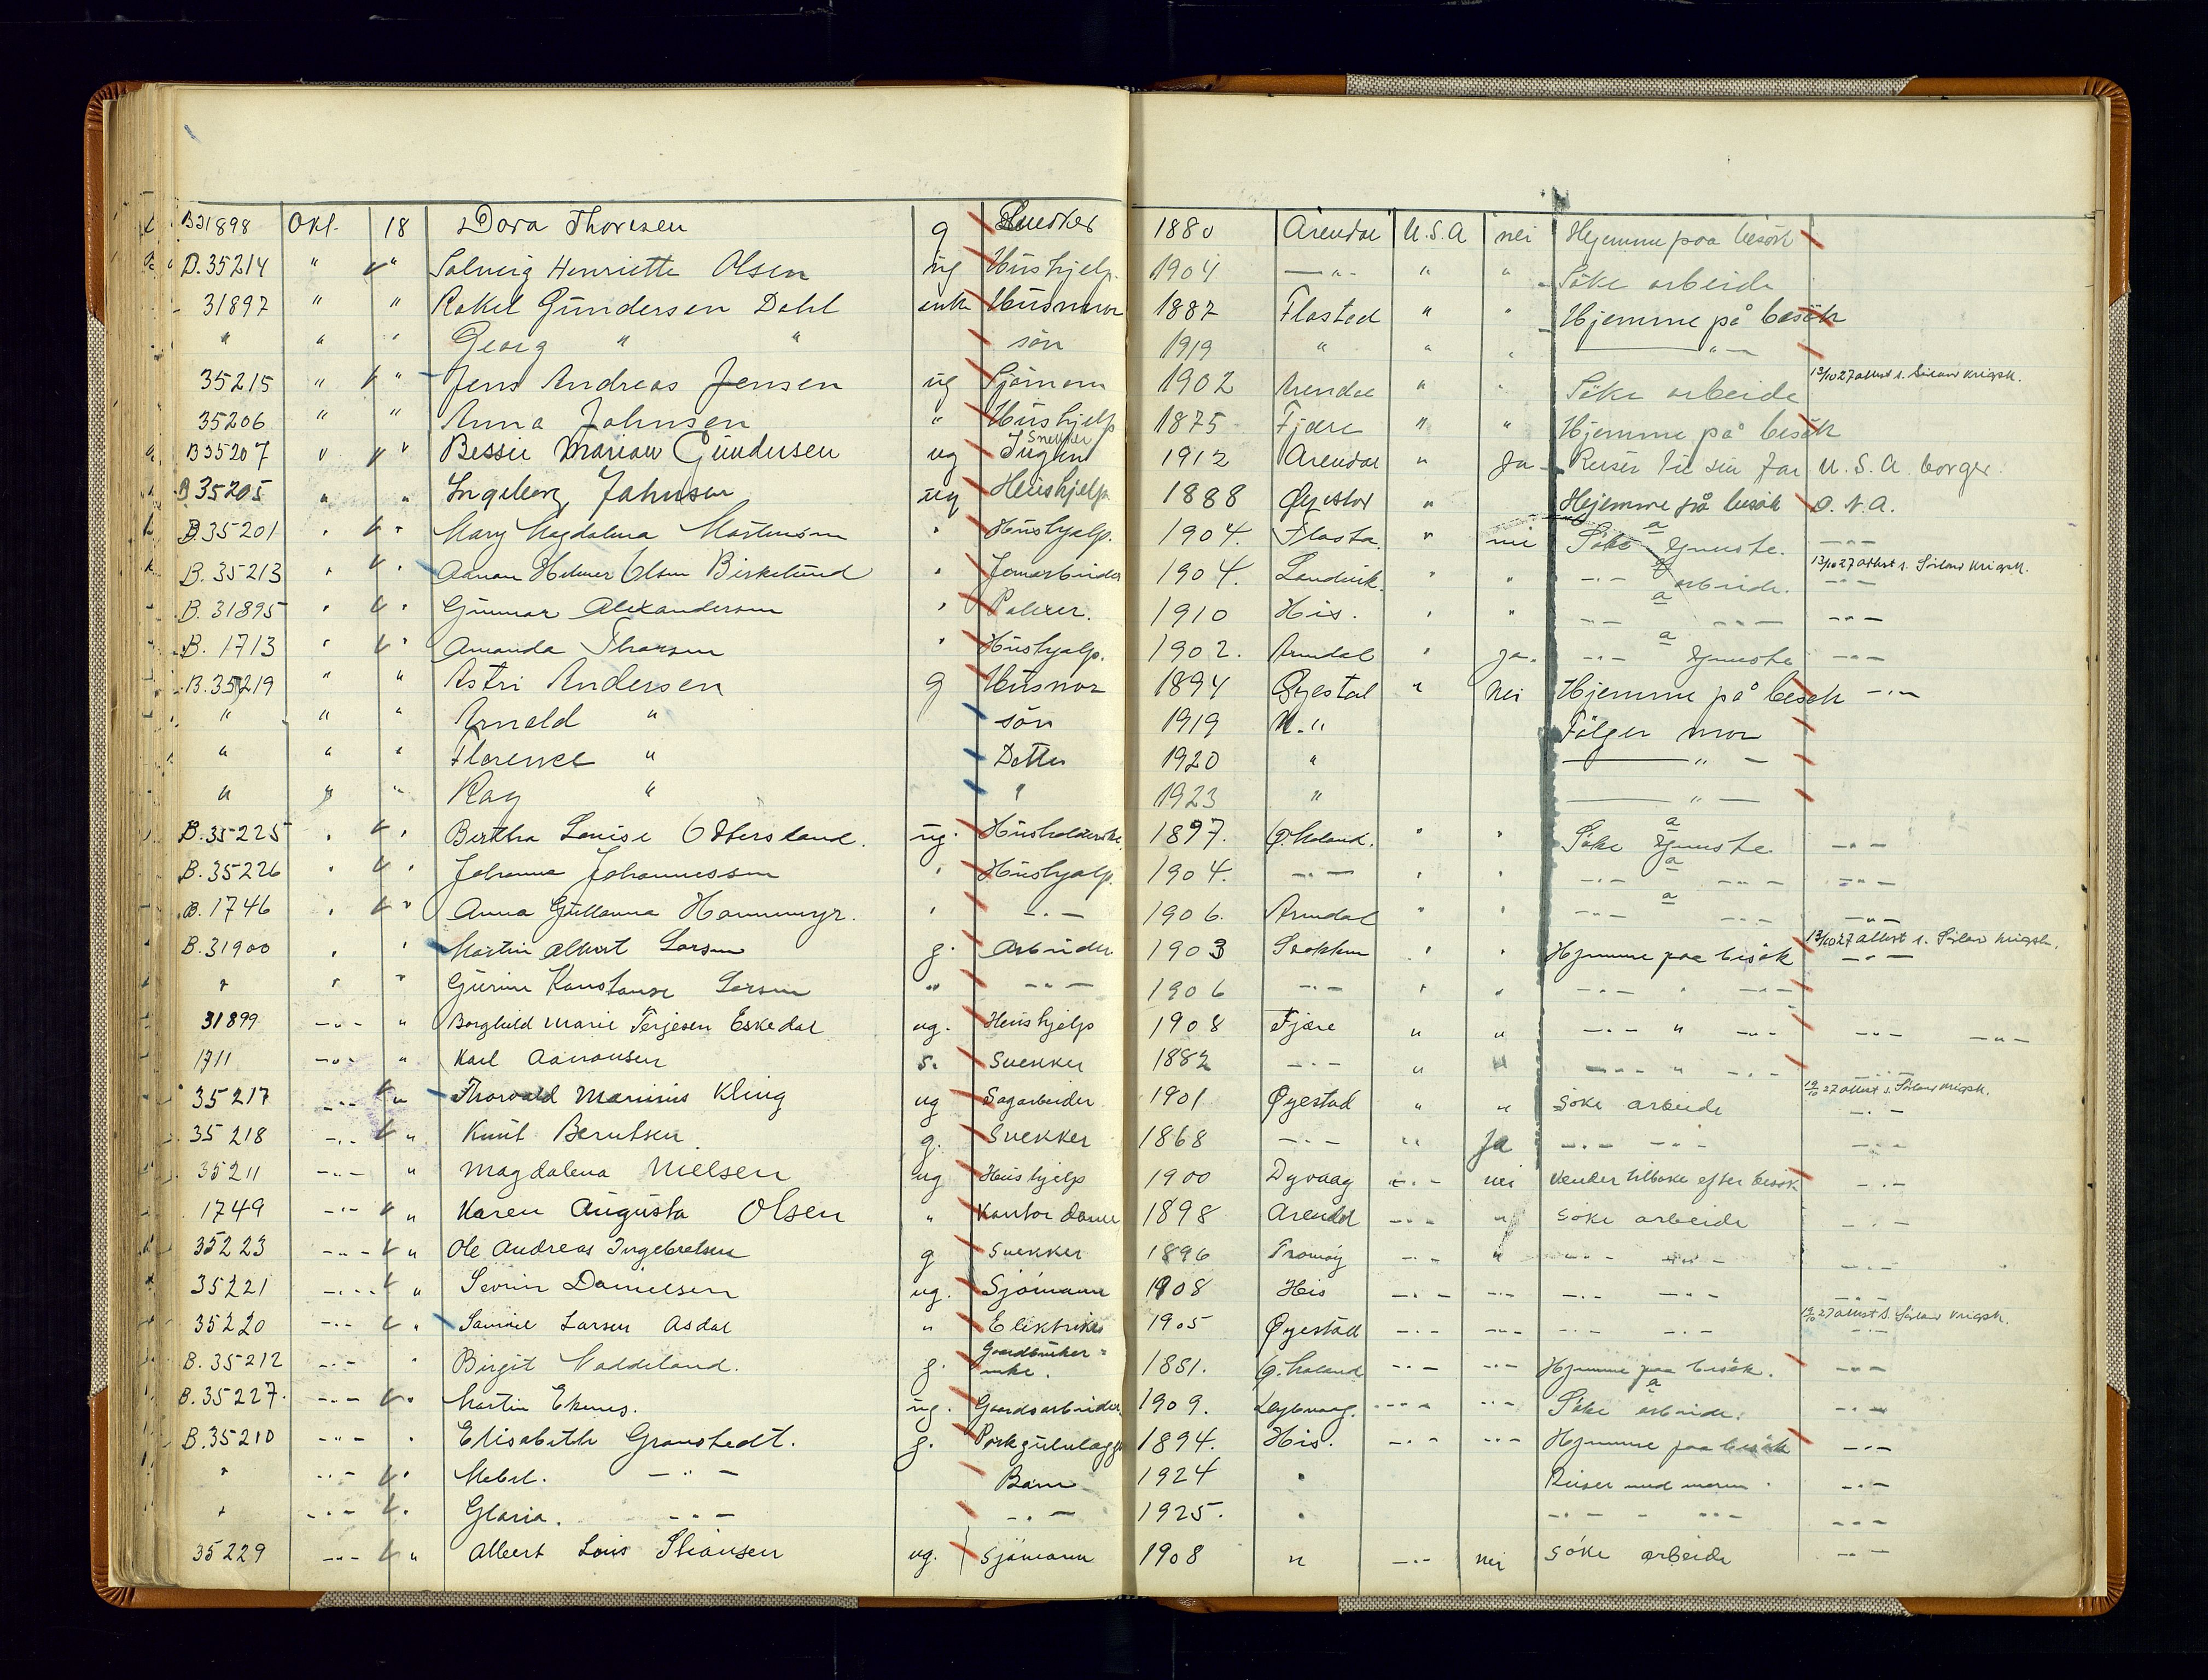 B31898 Okt. 18 Dora Thoresen g Snedker 1880 Arendal U.S.A nei Hjemme paa besök
D.35214 " " Solveig Henriette Olsen ug Hushjelp. 1904 —"- " " Söke arbeide
31897 " " Rakel Gundersen Dahl enke Husmor 1887 Flosted " " Hjemme på besök
" " " Georg " " sön 1919 " " " —"—
35215 " " Jens Andreas Jensen ug Sjömann 1902 Arendal " " Söke arbeide 13/10 27 attest s. Sörland krigsk.
35206 " " Anna Johnsen " Hushjelp 1875 Fjære " " Hjemme på besök
B35207 " " Bessie Marion Gundersen ug Snekker Ingen 1912 Arendal " Ja Reiser til sin far U.S.A. borger.
B35205 " " Ingeborg Johnsen ug Hushjelp 1888 Öyestad " Hejemme på besök D.N.A.
B.35201 " " Mary Magdalena Mortensen " Hushjelp. 1904. Flosta. " nei Söke a tjeneste. -"-
B.35213 " " Aanon Helmer Olsen Birkelund " Jernarbeider 1904. Landvik. " " -"- arbeide. 13/10 27 attest s. Sörland krigsk. -"-
B.31895 " " Gunnar Alexandersen " Polerer. 1910 His. " " -"- a -"- -"-
B. 1713 " " Amanda Thorsen " Hushjelp. 1902. Arendal " ja. -"- a tjeneste -"-
B.35219 " " Astri Andersen g Husmor 1894 Öyestad " nei Hjemme på besök -"-
" " " Arnold " sön 1919 U." Fölger mor
" " " Florence " Datter 1920 " —"—
" " " Ray " " 1923 " —"—
B.35225 " " Bertha Louise Ottersland. ug. Husholderske. 1897. Ö.Moland. " " Söke a tjeneste -"-
B.35226 " " Johanna Johannessen " Hushjelp. 1904. -"- " " -"- a -"- -"-
B. 1746 " " Anna Gullanna Hammemyr. " -"- 1906. Arendal " " -"- a -"- -"-
B.31900 " " Martin Albert Larsen g. Arbeider 1903 Stokken " " Hjemme paa besök 13/10 27 attest s. Sörland krigsk. -"-
" " " Gurine Konstanse Larsen " -"- 1906 -"- " " -"- " -"-
31899 -"- " Borghild Marie Terjesen Eskedal ug. Hushjelp 1908 Fjære " " -"- " -"- -"- -"-
1711 -"- " Karl Aanonsen s. Snekker 1882 -"- " " -"- " -"- -"-
35217 -"- " Thorvald Marinius Kling ug Sagarbeider 1901 Øyestad " " söke arbeide 13/10 27 attest s. Sörland krigsk. -"-
35218 -"- " Knut Berntsen g. Snekker 1868 -"- " Ja -"- -"- -"-
35211 -"- " Magdalena Nielsen ug Hushjelp 1900 Dyvaag -"- nei Vender tilbake efter besök -"-
1749 -"- " Karen Augusta Olsen " Kontordame 1898 Arendal -"- " söke arbeide -"-
35223 -"- " Ole Andreas Ingebretsen g Snekker 1896 Tromöy -"- " -"- -"- -"-
35221 -"- " Severin Danielsen ug. Sjömann 1908 His -"- -"- -"- -"- -"-
35220 -"- " Samuel Larsen Asdal " Elektriker 1905 Øyestad -"- -"- -"- -"- 13/10 27 attest s. Sörland krigsk. -"-
B.35212 -"- " Birgit Vaddeland. g. Gaardbruker-enke. 1881. Ö.Moland -"- -"- Hjemme paa besök. -"-
B.35227. -"- " Martin Ekenes. ug. Gaardsarbeider 1909. -"- -"- Söke a arbeide. -"-
B.35210 -"- " Elisabeth Granstedt. g. 1894. His. -"- -"- Hjemme paa besök -"-
" -"- " Mabel. -"- Barn 1924 " Reiser med moren. -"-
" -"- " Gloria. -"- -"- 1925. " -"- - -"- -"-
35229 -"- " Albert Louis ug. Sjömann 1908 " -"- nei söke arbeide -"-